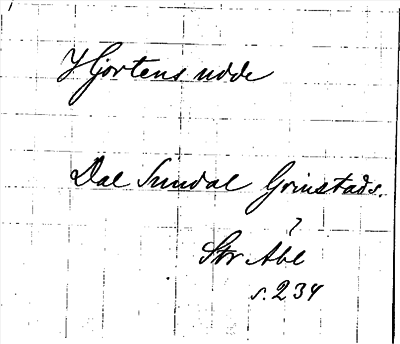 Hjortens udde
Dal Sundal Grinstads.
?
Str Åbl
s. 234